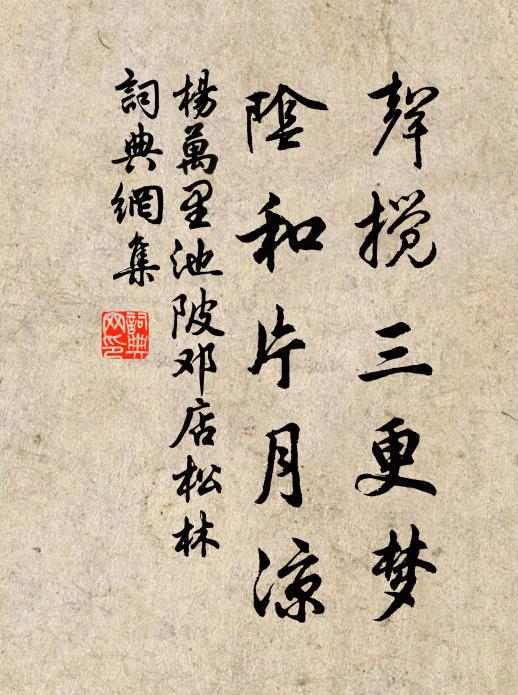 聲搅三更梦
陰和片月凉
楊萬里池陂邓店松林
詞典網集
詞典网印